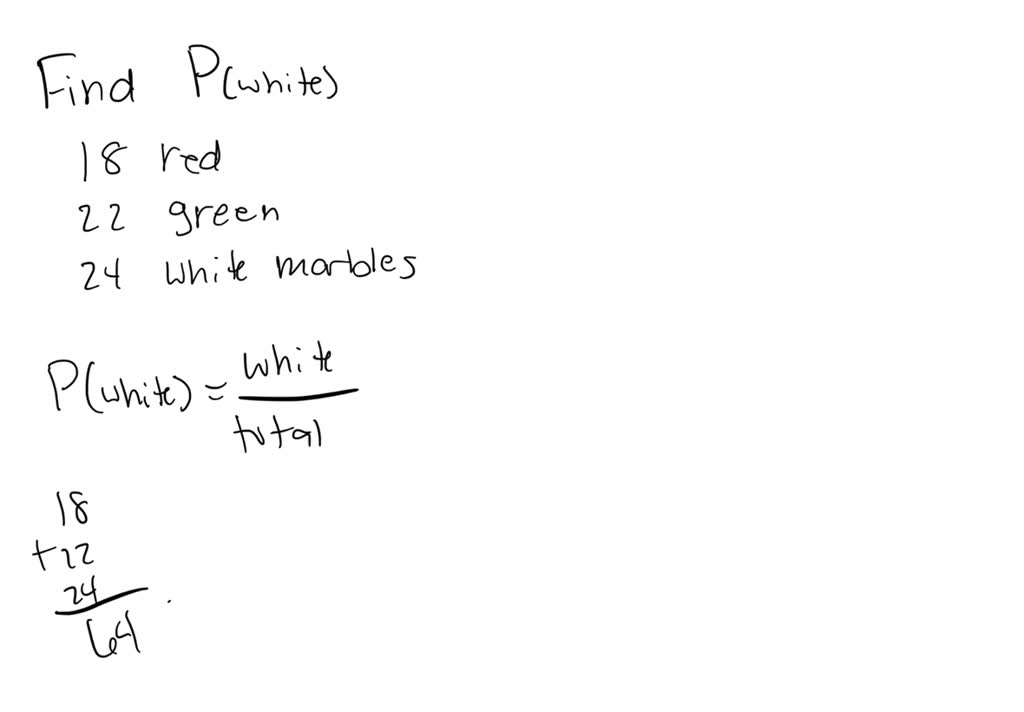 Find P(white)
18 red
22 green
24 white marbles
P(white) = white
total
18
+22
24
64